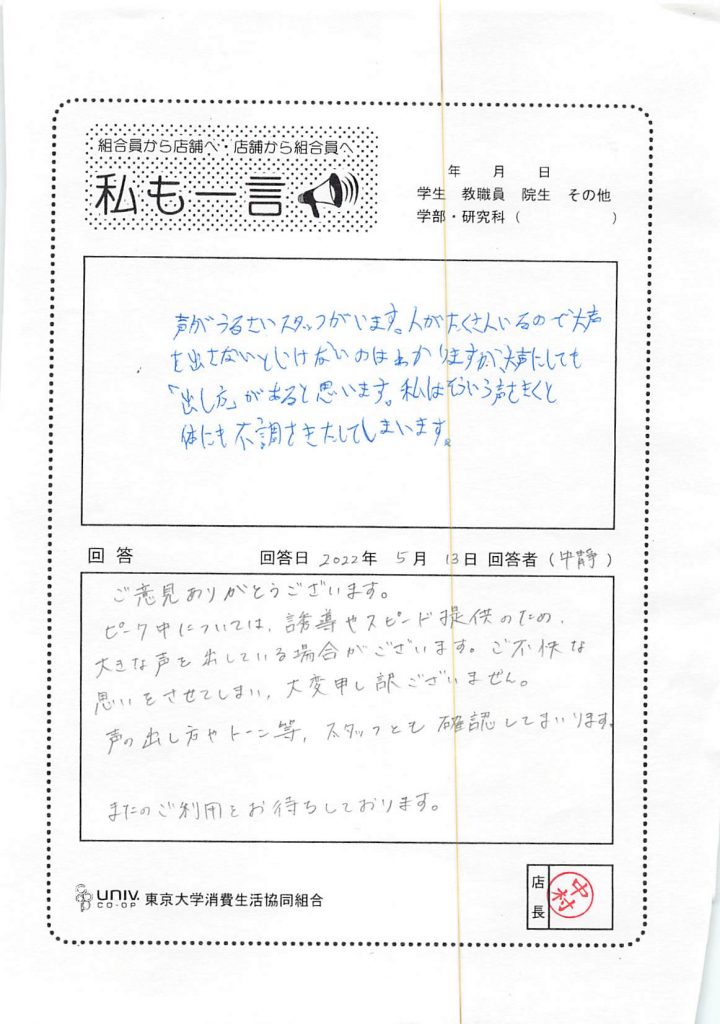 組合員から店舗へ・店舗から組合員へ
私も一言
年 月 日
学生 教職員 院生 その他
学部・研究科( )
声がうるさいスタッフがいます。人がたくさんいるので大声
を出さないといけないのはわかりますが、大声にしても
「出し方」があると思います。私はそういう声をきくと
体にも不調をきたしてしまいます。
回答 回答日 2022年 5月 13日 回答者(中静)
ご意見ありがとうございます。
ピーク中については、誘導やスピード提供のため、
大きな声を出している場合がございます。ご不快な
思いをさせてしまい、大変申し訳ございません。
声の出し方やトーン等、スタッフとも確認してまいります。
またのご利用をお待ちしております。
UNIV. CO-OP 東京大学消費生活協同組合
店長 中村